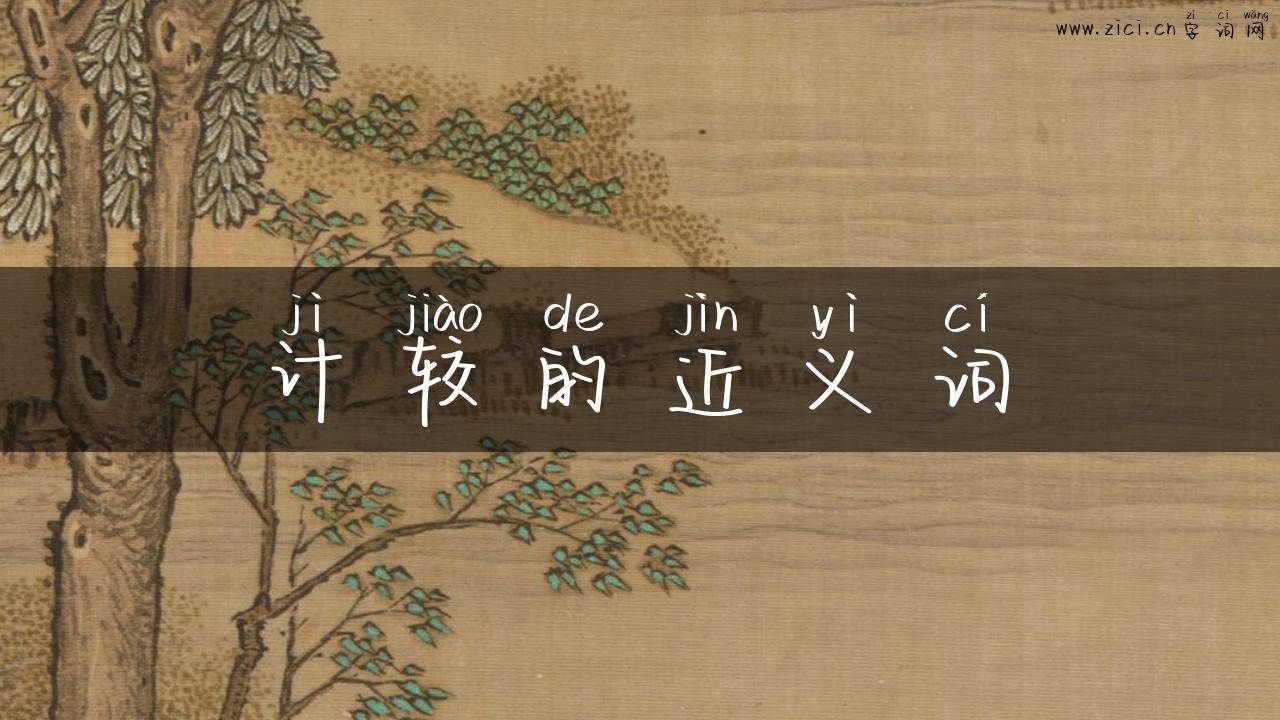 zì cí wǎng
www.zici.cn 字词网
jì jiào de jìn yì cí
计较的近义词